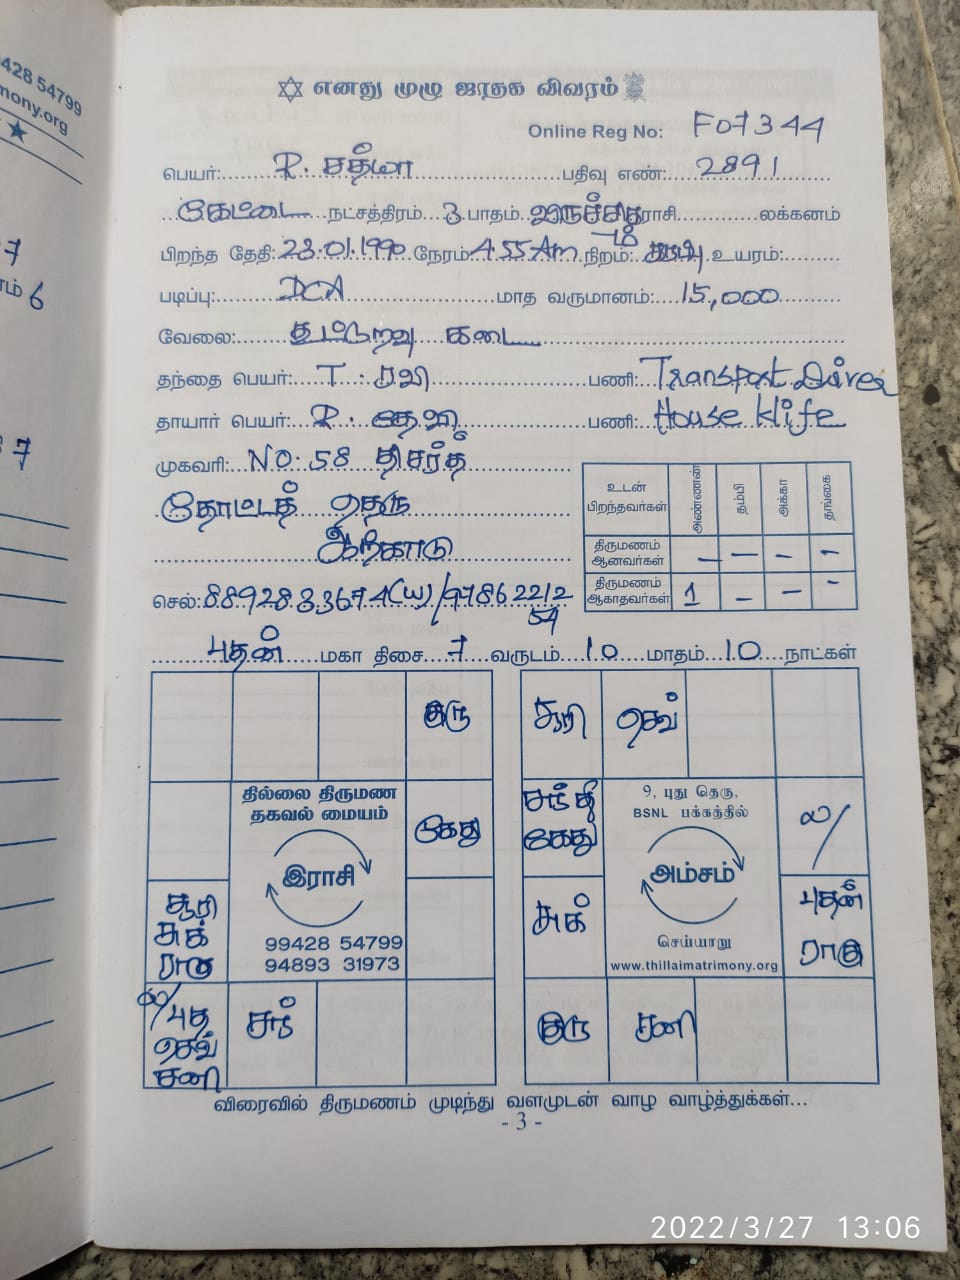 428 54799
mony.org
எனது முழு ஜாதக விவரம்
Online Reg No: F07344
பெயர்: R. சத்யா பதிவு எண்: 2891
கேட்டை நட்சத்திரம் 3 பாதம் விருச்சிகம் ராசி லக்கனம்
பிறந்த தேதி: 23.01.1990 நேரம் 4.55 Am நிறம்: கருப்பு உயரம்:
படிப்பு: DCA மாத வருமானம்: 15,000
வேலை: கூட்டுறவு கடை
தந்தை பெயர்: T. ரவி பணி: Transport Driver
தாயார் பெயர்: R. தேவி பணி: House Wife
முகவரி: NO. 58
தோட்டத் தெரு
ஆற்காடு
உடன் பிறந்தவர்கள் அண்ணன் தம்பி அக்கா தங்கை
திருமணம் ஆனவர்கள் – – – –
திருமணம் ஆகாதவர்கள் 1 – – –
செல்: 8892833674(W)/9786221254
புதன் மகா திசை 7 வருடம் 10 மாதம் 10 நாட்கள்
குரு
கேது
சூரி
சுக்
ராகு
ல/ புத
செவ்
சனி
சந்
தில்லை திருமண
தகவல் மையம்
இராசி
99428 54799
94893 31973
சூரி செவ்
சந்தி
கேது
ல/
சுக்
புதன்
ராகு
குரு சனி
9, புது தெரு,
BSNL பக்கத்தில்
அம்சம்
செய்யாறு
www.thillaimatrimony.org
விரைவில் திருமணம் முடிந்து வளமுடன் வாழ வாழ்த்துக்கள்...
- 3 -
2022/3/27 13:06